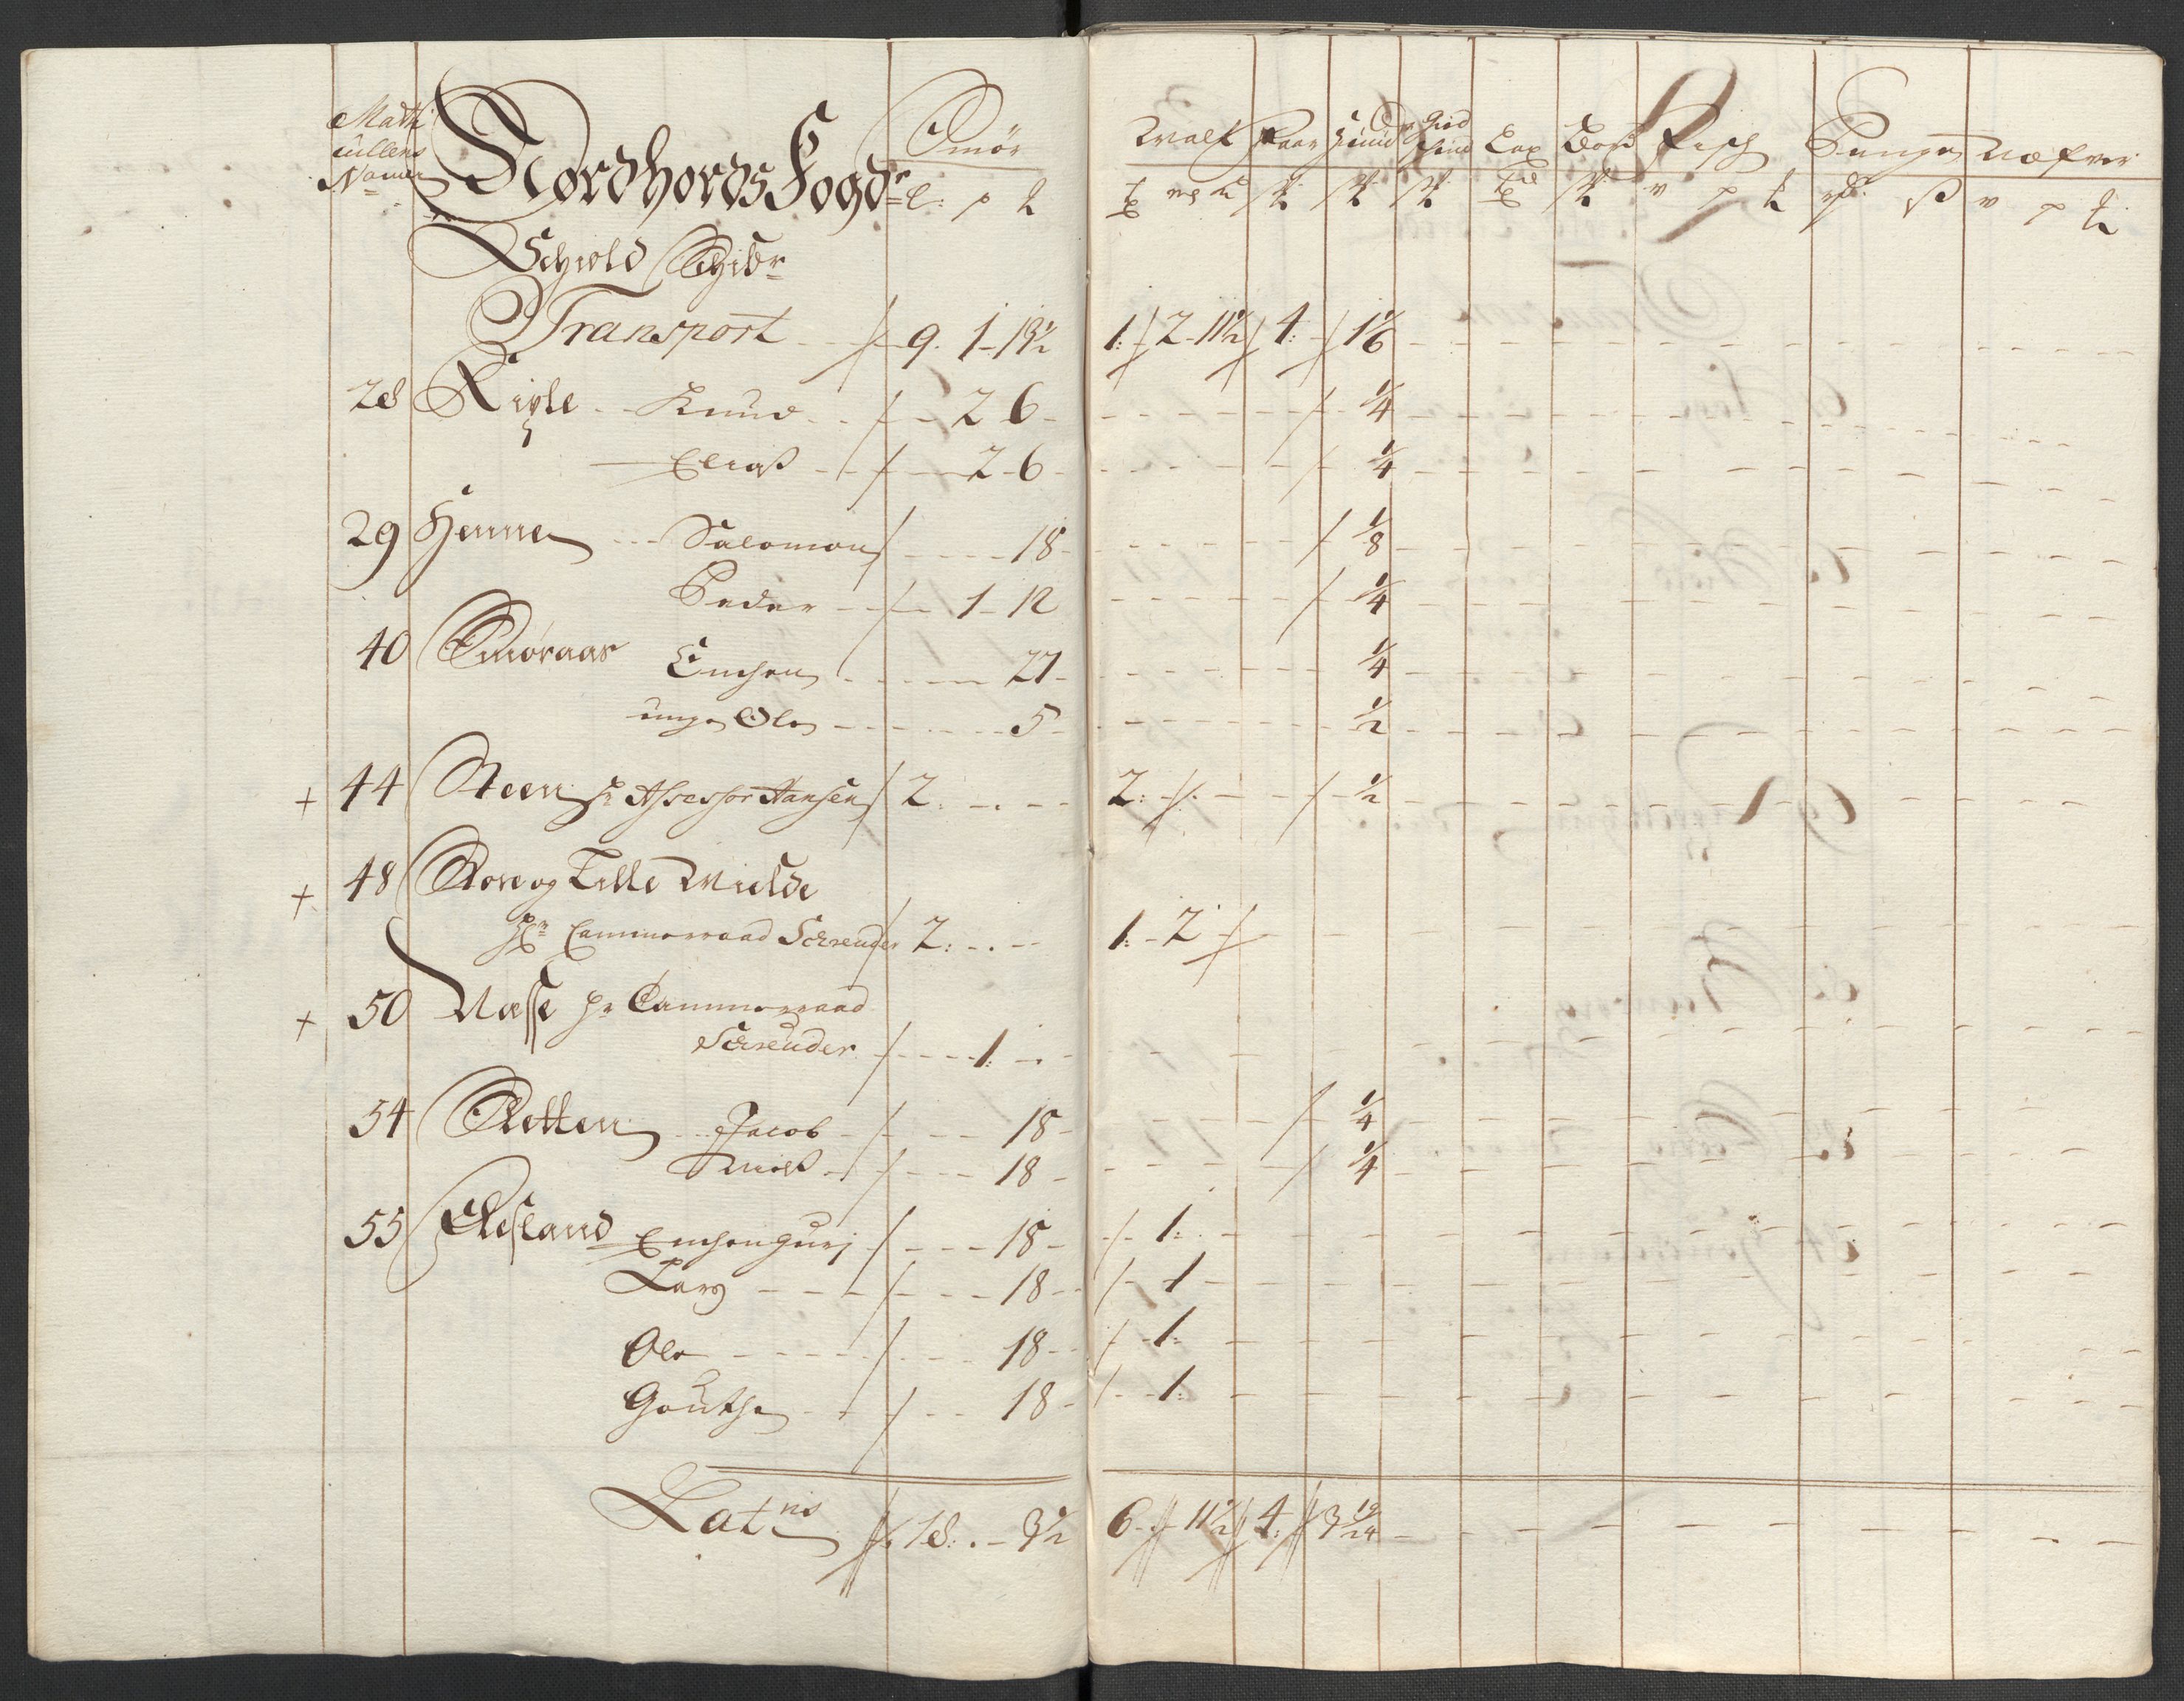 Matri
cullens
Nomer
Nordhords Fogd:
Smør
Malt Kaar Huud Gied Skind Lax Bost Fisch Penge Næfver
Schiold Schibr
Transport 9. 1 - 19½ 1: 2 - 11½ 4: 1⅙
28 Rigle Knud 2 6 - ¼
Elias 2 - 6 ¼
29 Henne Salomon 18 ⅛
Peder 1 - 12 ¼
40 Smøraas Enchen 27 ¼
unge Ole 5 ½
+ 44 Steen Hr Assessor Hansen 2: 2: ½
+ 48 Store og Lille Milde
Hr Cammerraad Schreuder 2: 1: - 2
+ 50 Næsse Hr Cammerraad
Schreuder 1:
54 Sletten Jacob 18 ¼
Niels 18 ¼
55 Øvsland Enchen Guri 18 1:
Lars 18 1
Ole 18 1:
Gouthe 18 1:
Latris 18: . - 3½ 6 - 11½ 4: 3 19/24